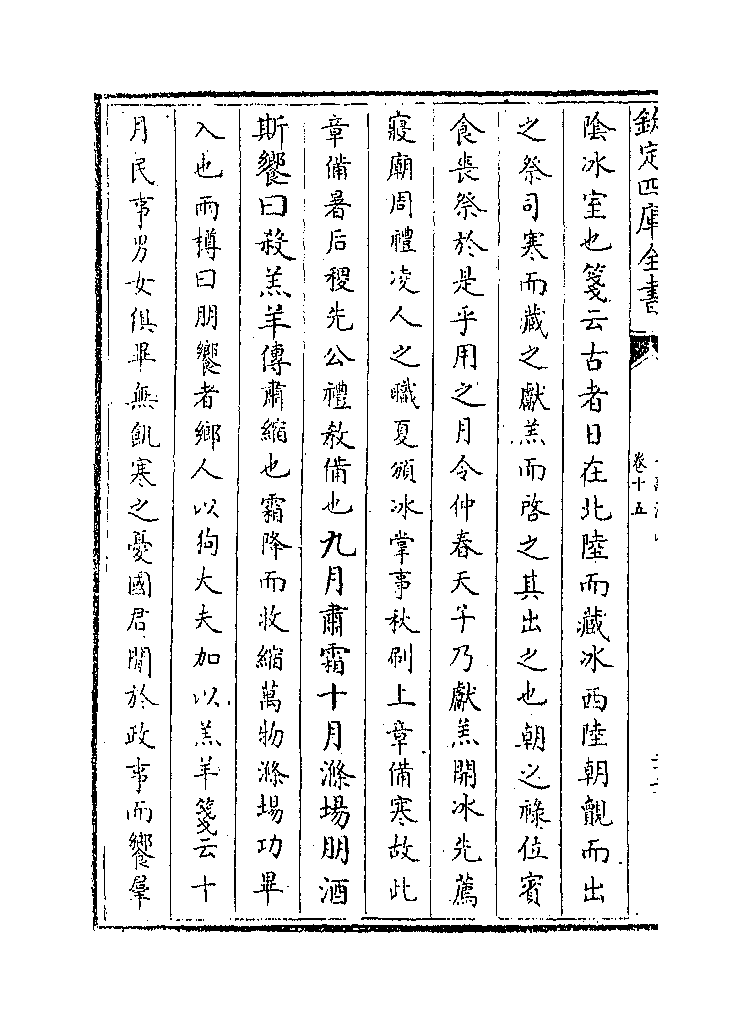 欽定四庫全書
卷十五
陰冰室也箋云古者日在北陸而藏冰西陸朝覿而出
之祭司寒而藏之獻羔而啓之其出之也朝之祿位賓
食喪祭於是乎用之月令仲春天子乃獻羔開冰先薦
寢廟周禮凌人之職夏頒冰掌事秋刷上章備寒故此
章備暑后稷先公禮敎備也九月肅霜十月滌場朋酒
斯饗曰殺羔羊傳肅縮也霜降而收縮萬物滌場功畢
入也兩樽曰朋饗者鄉人以狗大夫加以羔羊箋云十
月民事男女俱畢無飢寒之憂國君閒於政事而饗羣